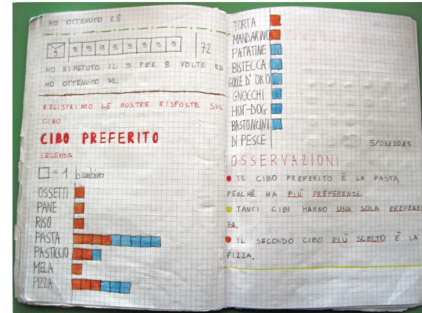 HO OTTENUTO
8 9 9 9 9 9 9 9 9 72
HO RIPETUTO IL 9 PER 8 VOLTE E
HO OTTENUTO 72.
REGISTRIAMO LE NOSTRE RISPOSTE SUL
CIBO
CIBO PREFERITO
LEGENDA
= 1 bambino
OSSETTI
PANE
RISO
PASTA
PASTICCIO
MELA
PIZZA
TORTA
MANDARINO
PATATINE
BISTECCA
GOLE D'ORO
GNOCCHI
HOT-DOG
BASTONCINI
DI PESCE
OSSERVAZIONI
IL CIBO PREFERITO È LA PASTA,
PERCHÉ HA PIÙ PREFERENZE.
TANTI CIBI HANNO UNA SOLA PREFEREN
ZA.
IL SECONDO CIBO PIÙ SCELTO È LA
PIZZA.